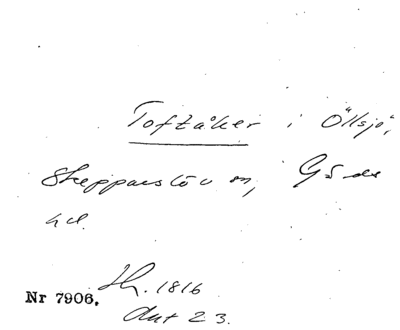 Toftåker i Öllsjö,
Skepparslöv sn, Gärds
hd.
Sk. 1816
Akt 23.
Nr 7906.